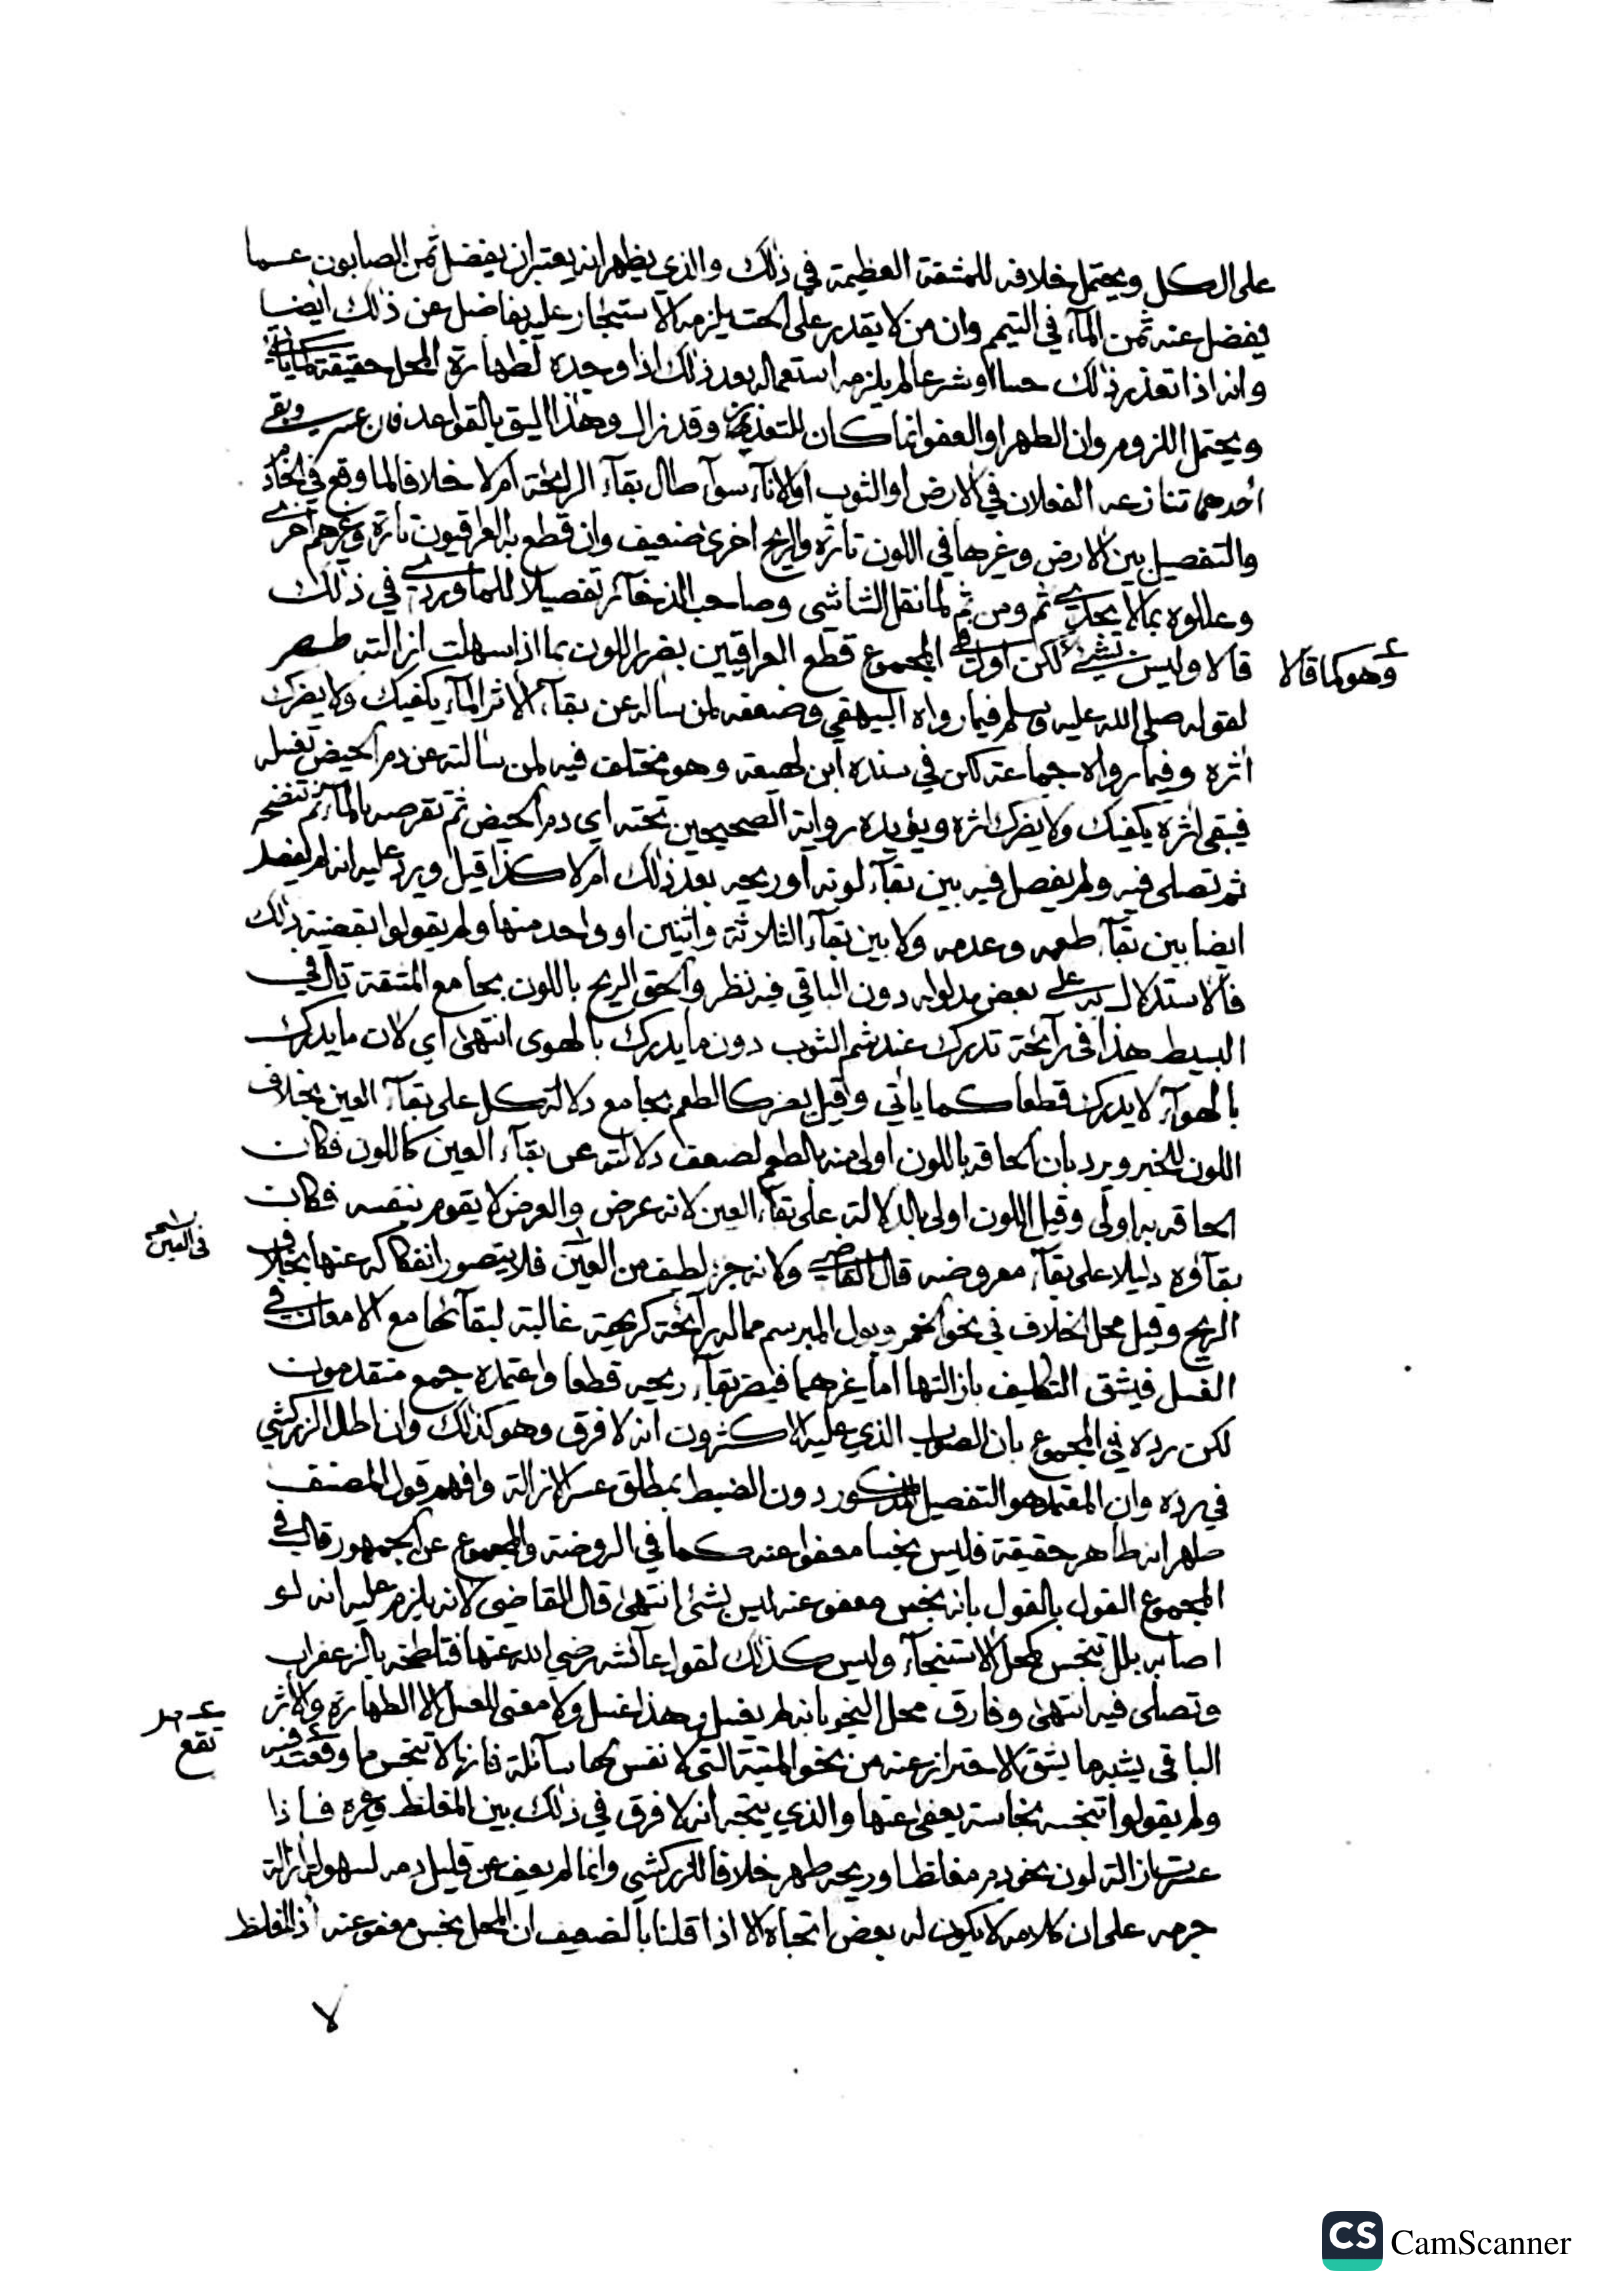 على الكل ويحتمل خلافه للمشقة العظيمة في ذلك والذي يظهر انه يعتبر ان يفضل ثمن الصابون عــما
يفضل عنه ثمن المآء في التيمم وان من لا يقدر على الحت يلزمه الاستيجار عليه بفاضل عن ذلك ايضا
وانه اذا تعذر ذلك حسا او شرعا لم يلزمه استعماله بعد ذلك اذا وجده لطهارة المحل حقيقة كما ياتي
ويحتمل اللزوم وان الطهر او العفو انما كان للتعذر وقد زال وهذا اليق بالقواعد فان عسر وبقي
احدهما تنازعه الفعلان في الارض او الثوب او الانآء سوآء طال بقآء الرائحة ام لا خلافا لما وقع في الخادم
والتفصيل بين الارض وغيرها في اللون تارة والريح اخرى ضعيف وان قطع به العراقيون تارة وغيرهم اخرى
وعللوه بما لا يجدي ثم ومن ثم لما نقل الشاشي وصاحب الذخآئر تفصيلا للماوردي في ذلك
قالا وليس بشيء لكن اول في المجموع قطع العراقيين بضرر اللون بما اذا سهلت ازالته طــهر
وهو كما قالا
لقوله صلى الله عليه وسلم فيما رواه البيهقي وضعفه لمن ساله عن بقآء الاثر المآء يكفيك ولا يضرك
اثره وفيما رواه جماعة لكن في سنده ابن لهيعة وهو مختلف فيه لمن سالته عن دم الحيض تغسله
فيبقى اثره يكفيك ولا يضرك اثره ويؤيده رواية الصحيحين تحته اي دم الحيض ثم تقرصه بالمآء ثم تنضحه
ثم تصلي فيه ولم يفصل فيه بين بقآء لونه او ريحه بعد ذلك ام لا كذا قيل ويرد عليه انه لم يفصل
ايضا بين بقآء طعمه وعدمه ولا بين بقآء الثلاثة واثنين او واحد منها ولم يقولوا بقضية ذلك
فالاستدلال به على بعض مدلوله دون الباقي فيه نظر والحق الريح باللون بجامع المشقة قال في
البسيط هذا في رآئحة تدرك عند شم الثوب دون ما يدرك بالهوى انتهى اي لان ما يدرك
بالهوآء لا يدرك قطعا كما ياتي وقيل يضر كالطعم بجامع دلالة كل على بقآء العين بخلاف
اللون للخبر ويرد بان الحاقه باللون اولى منه بالطعم لضعف دلالته عن بقآء العين كاللون فكان
الحاقه به اولى وقيل اللون اولى بالدلالة على بقآء العين لانه عرض والعرض لا يقوم بنفسه فكان
بقآؤه دليلا على بقآء معروضه قال القاضي ولانه جزء لطيف من العين فلا يتصور انفكاكه عنها بخلاف
الريح وقيل محل الخلاف في نحو الخمر وبول المبرسم مما له رآئحة كريهة غالبة لبقآئها مع الامعان في
الغسل فيشق التكليف بازالتها اما غيرهما فيضر بقآء ريحه قطعا واعتمده جمع متقدمون
لكن رده في المجموع بان الصواب الذي عليه الاكثرون انه لا فرق وهو كذلك وان اطال الزركشي
في رده وان المعتمد هو التفصيل المذكور دون الضبط بمطلق عسر الازالة وافهم قول المصنف
طهر انه طاهر حقيقة فليس نجسا معفوا عنه كما في الروضة والمجموع عن الجمهور قال في
المجموع القول بالقول بانه نجس معفو عنه ليس بشئ انتهى قال القاضي لانه يلزم عليه انه لو
اصابه بلل تنجس كمحل الاستنجآء وليس كذلك لقول عآئشة رضي الله عنها فتلطخه بالزعفران
وتصلى فيه انتهى وفارق محل النجو بانه لم يغسل وهذا غسل ولا معنى للغسل الا الطهارة والاثر
الباقي يشبه ما يشق الاحتراز عنه من نحو الميتة التي لا نفس لها سآئلة فانها لا تنجس ما وقعت فيه
تقع
ولم يقولوا تنجسه نجاسة يعفى عنها والذي يتجه انه لا فرق في ذلك بين المغلظ وغيره فــاذا
عسرت ازالة لون نحو دم مغلظ او ريحه طهر خلافا للزركشي وانما لم يعف عن قليل دمه لسهولة ازالة
جرمه على ان كلامه لا يكون له بعض اتجاه الا اذا قلنا بالضعيف ان المحل نجس معفو عنه اذ المغلظ
لا
CS CamScanner